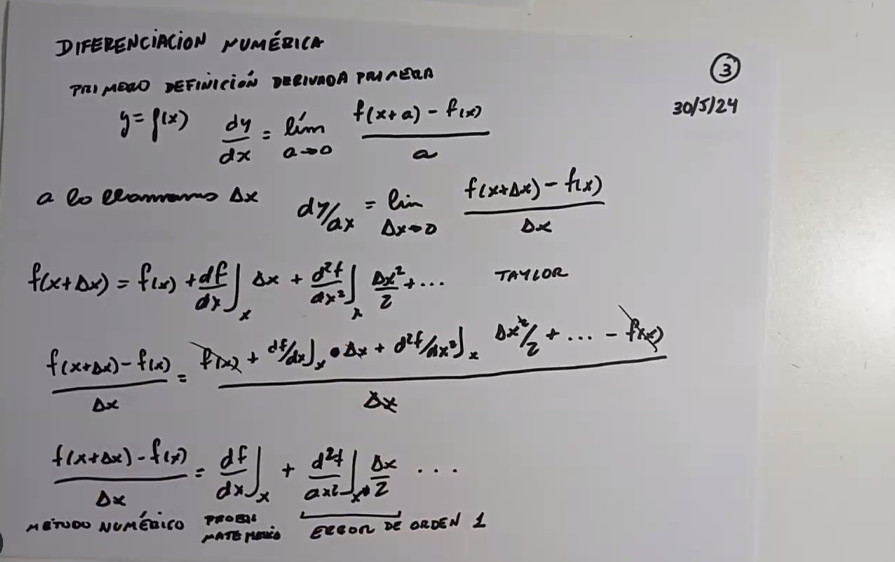 DIFERENCIACION NUMÉRICA
③
PRIMERO DEFINICIÓN DERIVADA PRIMERA
30/5/24
y = f(x) dy/dx = lím a→0 (f(x+a) - f(x))/a
a lo llamamos Δx dy/dx = lim Δx→0 (f(x+Δx) - f(x))/Δx
f(x+Δx) = f(x) + df/dx]x Δx + d²f/dx²]x Δx²/2 + ... TAYLOR
(f(x+Δx) - f(x))/Δx = (f(x) + df/dx]x • Δx + d²f/dx²]x Δx²/2 + ... - f(x))/Δx
(f(x+Δx) - f(x))/Δx = df/dx]x + d²f/dx²]x • Δx/2 ...
MÉTODO NUMÉRICO ERROR DE ORDEN 1